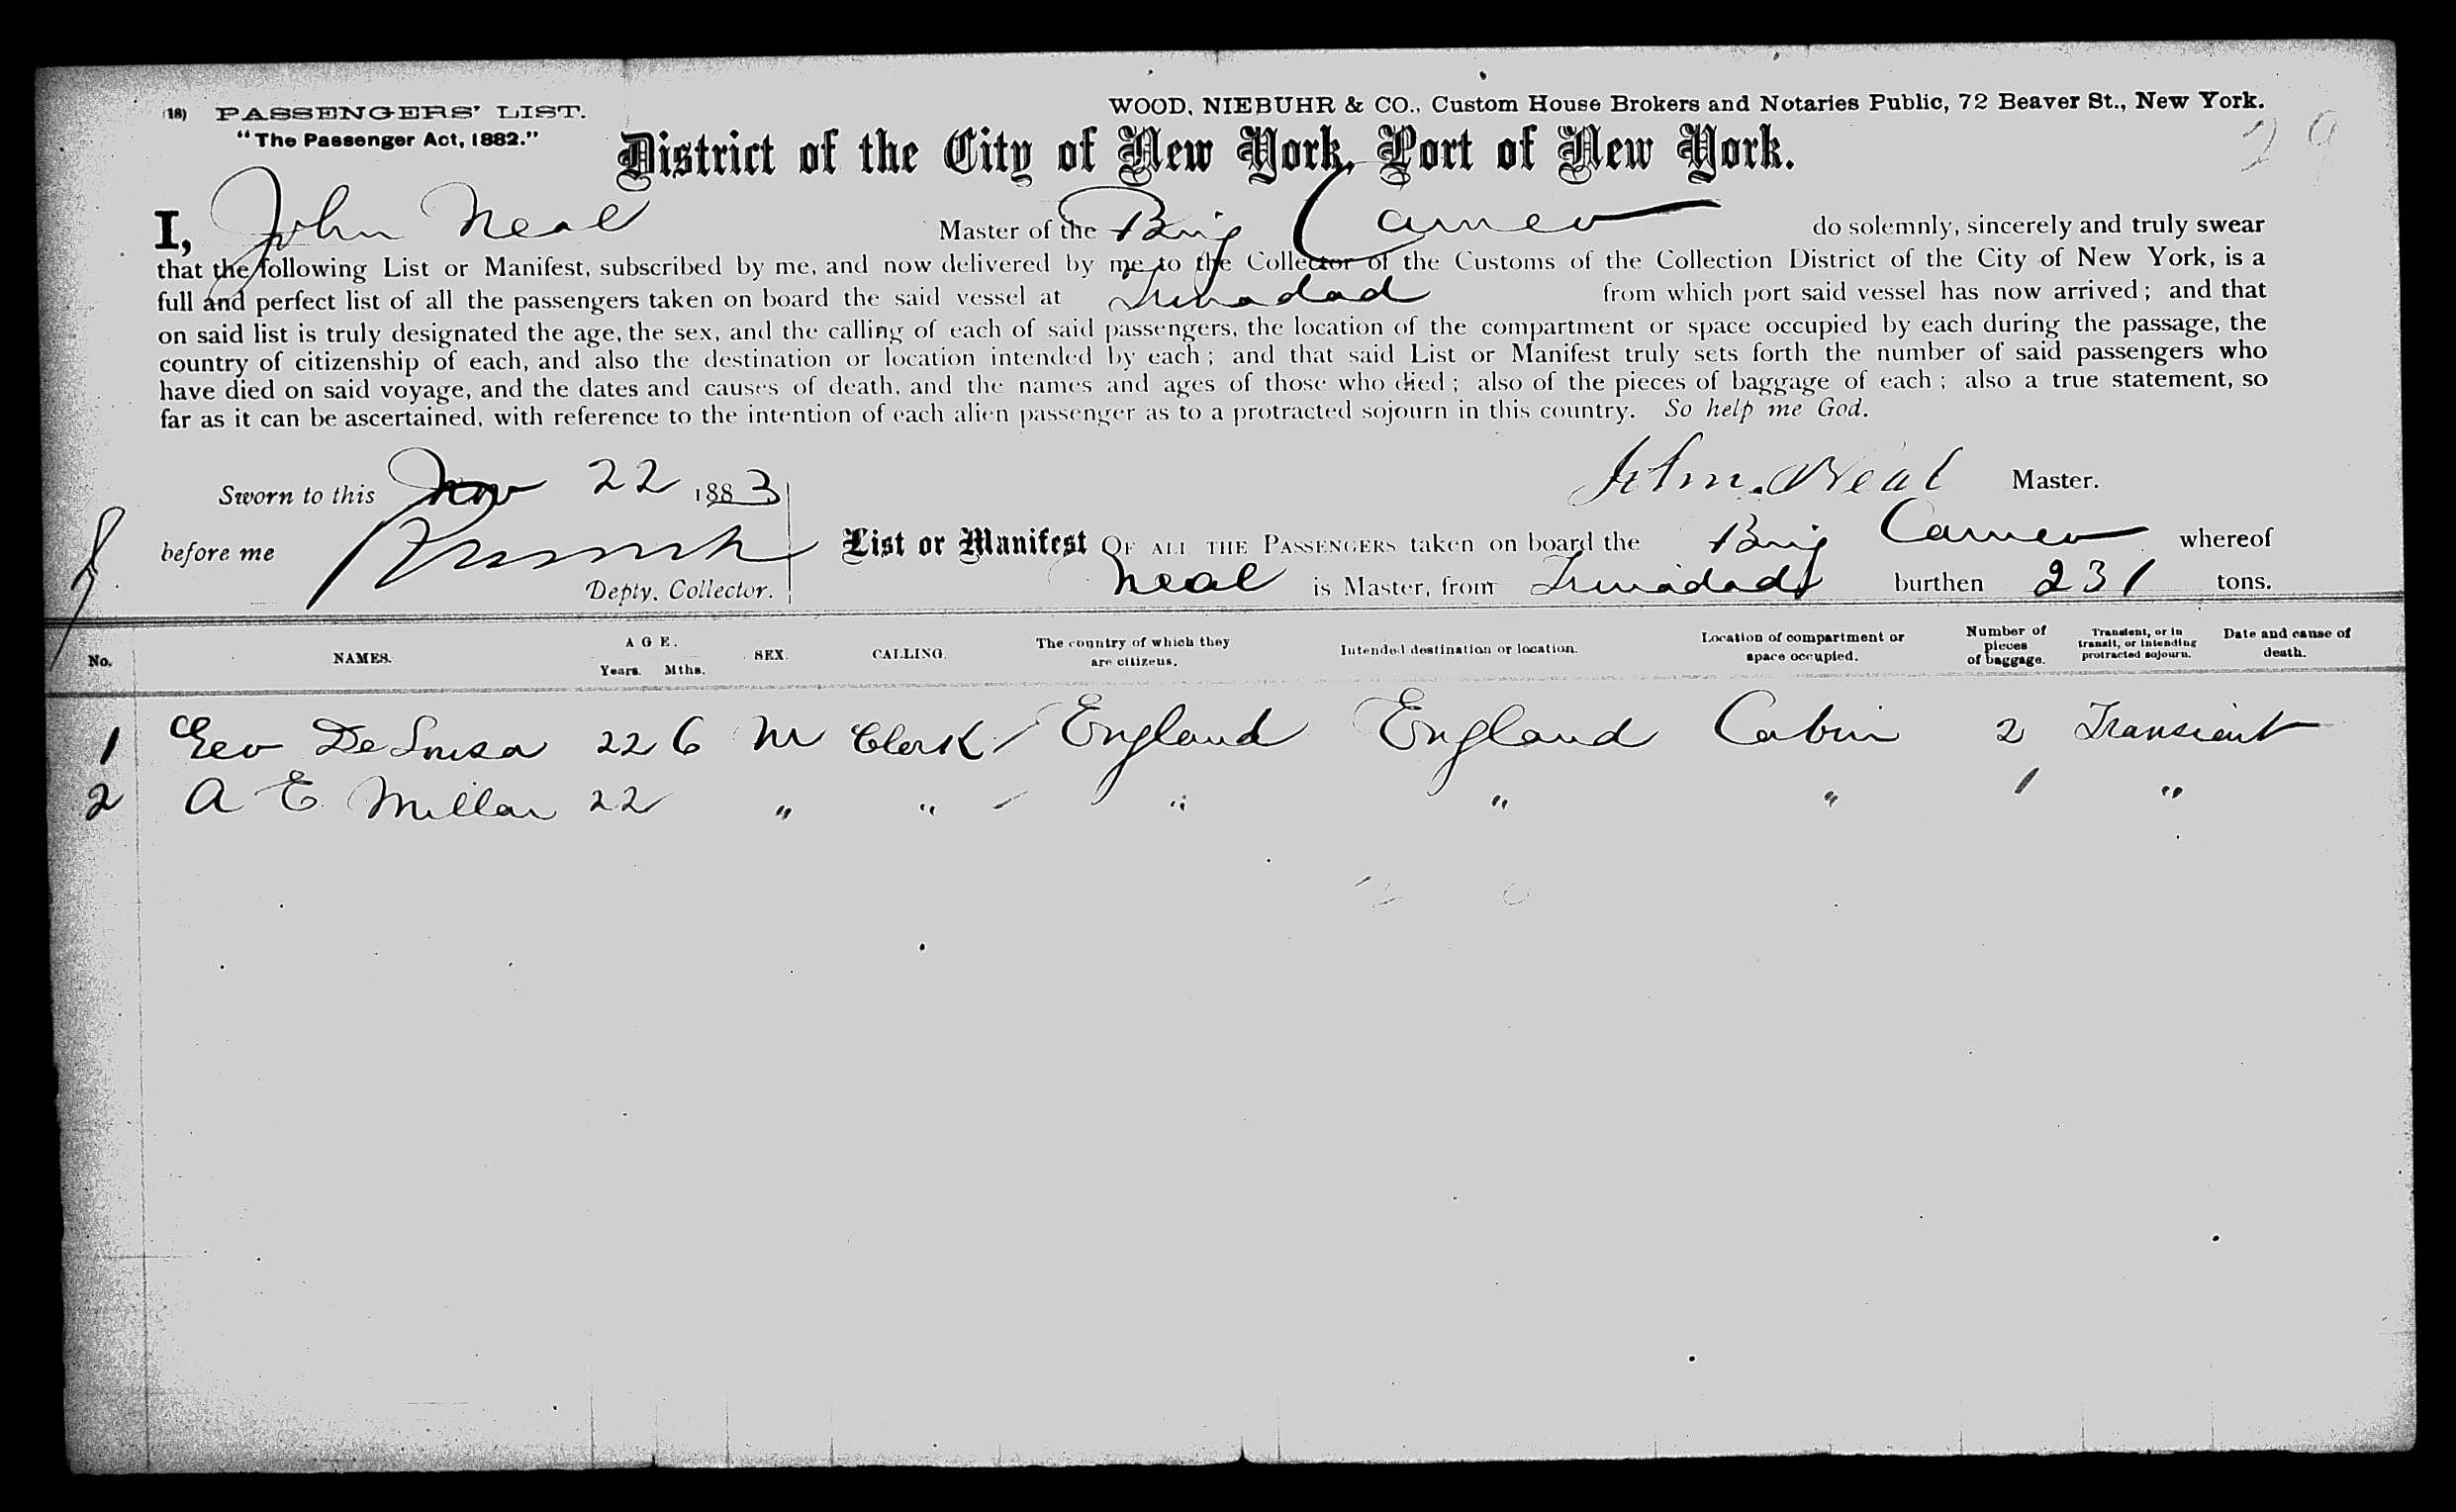 (18) PASSENGERS' LIST.
"The Passenger Act, 1882."
WOOD, NIEBUHR & CO., Custom House Brokers and Notaries Public, 72 Beaver St., New York.
29
District of the City of New York, Port of New York.
I, John Neal Master of the Brig Cameo do solemnly, sincerely and truly swear
that the following List or Manifest, subscribed by me, and now delivered by me to the Collector of the Customs of the Collection District of the City of New York, is a
full and perfect list of all the passengers taken on board the said vessel at Trinadad from which port said vessel has now arrived; and that
on said list is truly designated the age, the sex, and the calling of each of said passengers, the location of the compartment or space occupied by each during the passage, the
country of citizenship of each, and also the destination or location intended by each; and that said List or Manifest truly sets forth the number of said passengers who
have died on said voyage, and the dates and causes of death, and the names and ages of those who died; also of the pieces of baggage of each; also a true statement, so
far as it can be ascertained, with reference to the intention of each alien passenger as to a protracted sojourn in this country. So help me God.
Sworn to this Nov 22 1883
John Neal Master.
before me
Depty. Collector.
List or Manifest OF ALL THE PASSENGERS taken on board the Brig Cameo whereof
Neal is Master, from Trinadad burthen 231 tons.
No. NAMES. AGE. Years. Mths. SEX. CALLING. The country of which they are citizens. Intended destination or location. Location of compartment or space occupied. Number of pieces of baggage. Transient, or in transit, or intending protracted sojourn. Date and cause of death.
1 Geo De Sousa 22 6 M Clerk / England England Cabin 2 Transient
2 A E Millar 22 " " / " " " 1 "